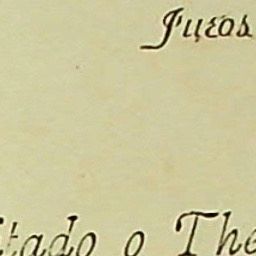 Juros
itado o The